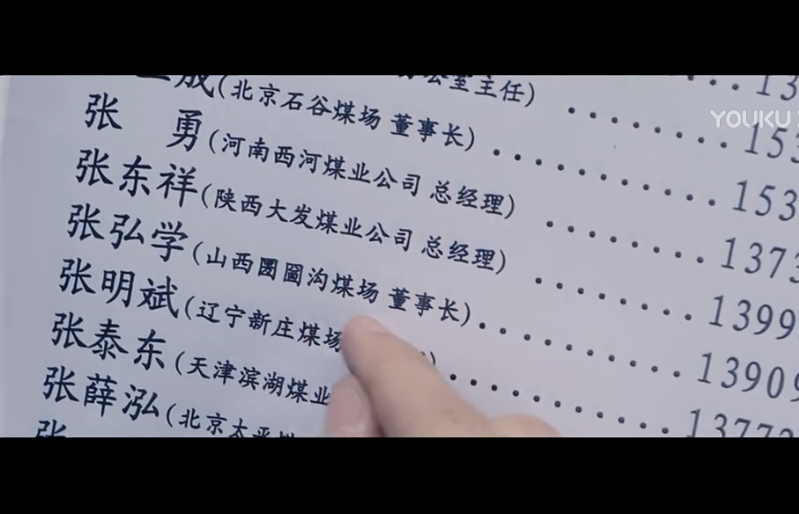 13
公室主任) 153
成(北京石谷煤场 董事长) 153
张 勇(河南西河煤业公司 总经理) 1373
张东祥(陕西大发煤业公司 总经理) 1399
张弘学(山西圐圙沟煤场 董事长) 13909
张明斌(辽宁新庄煤场 ) 13772
张泰东(天津滨湖煤业
张薛泓(北京太平
张
YOUKU